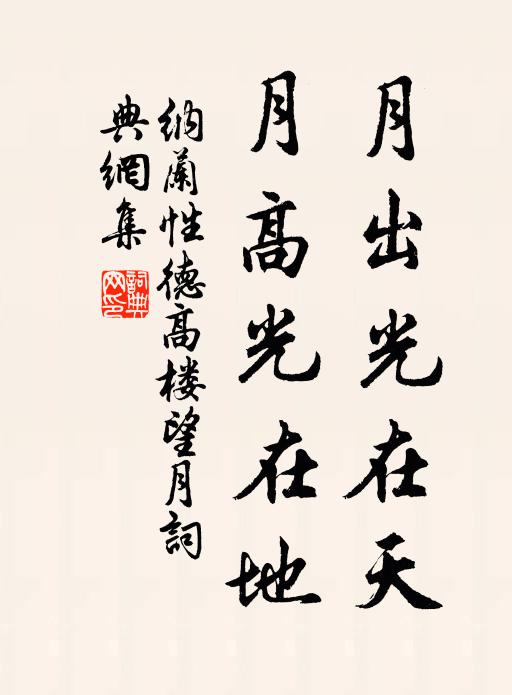 月出光在天
月高光在地
納蘭性德高楼望月詞
典網集
詞典网印